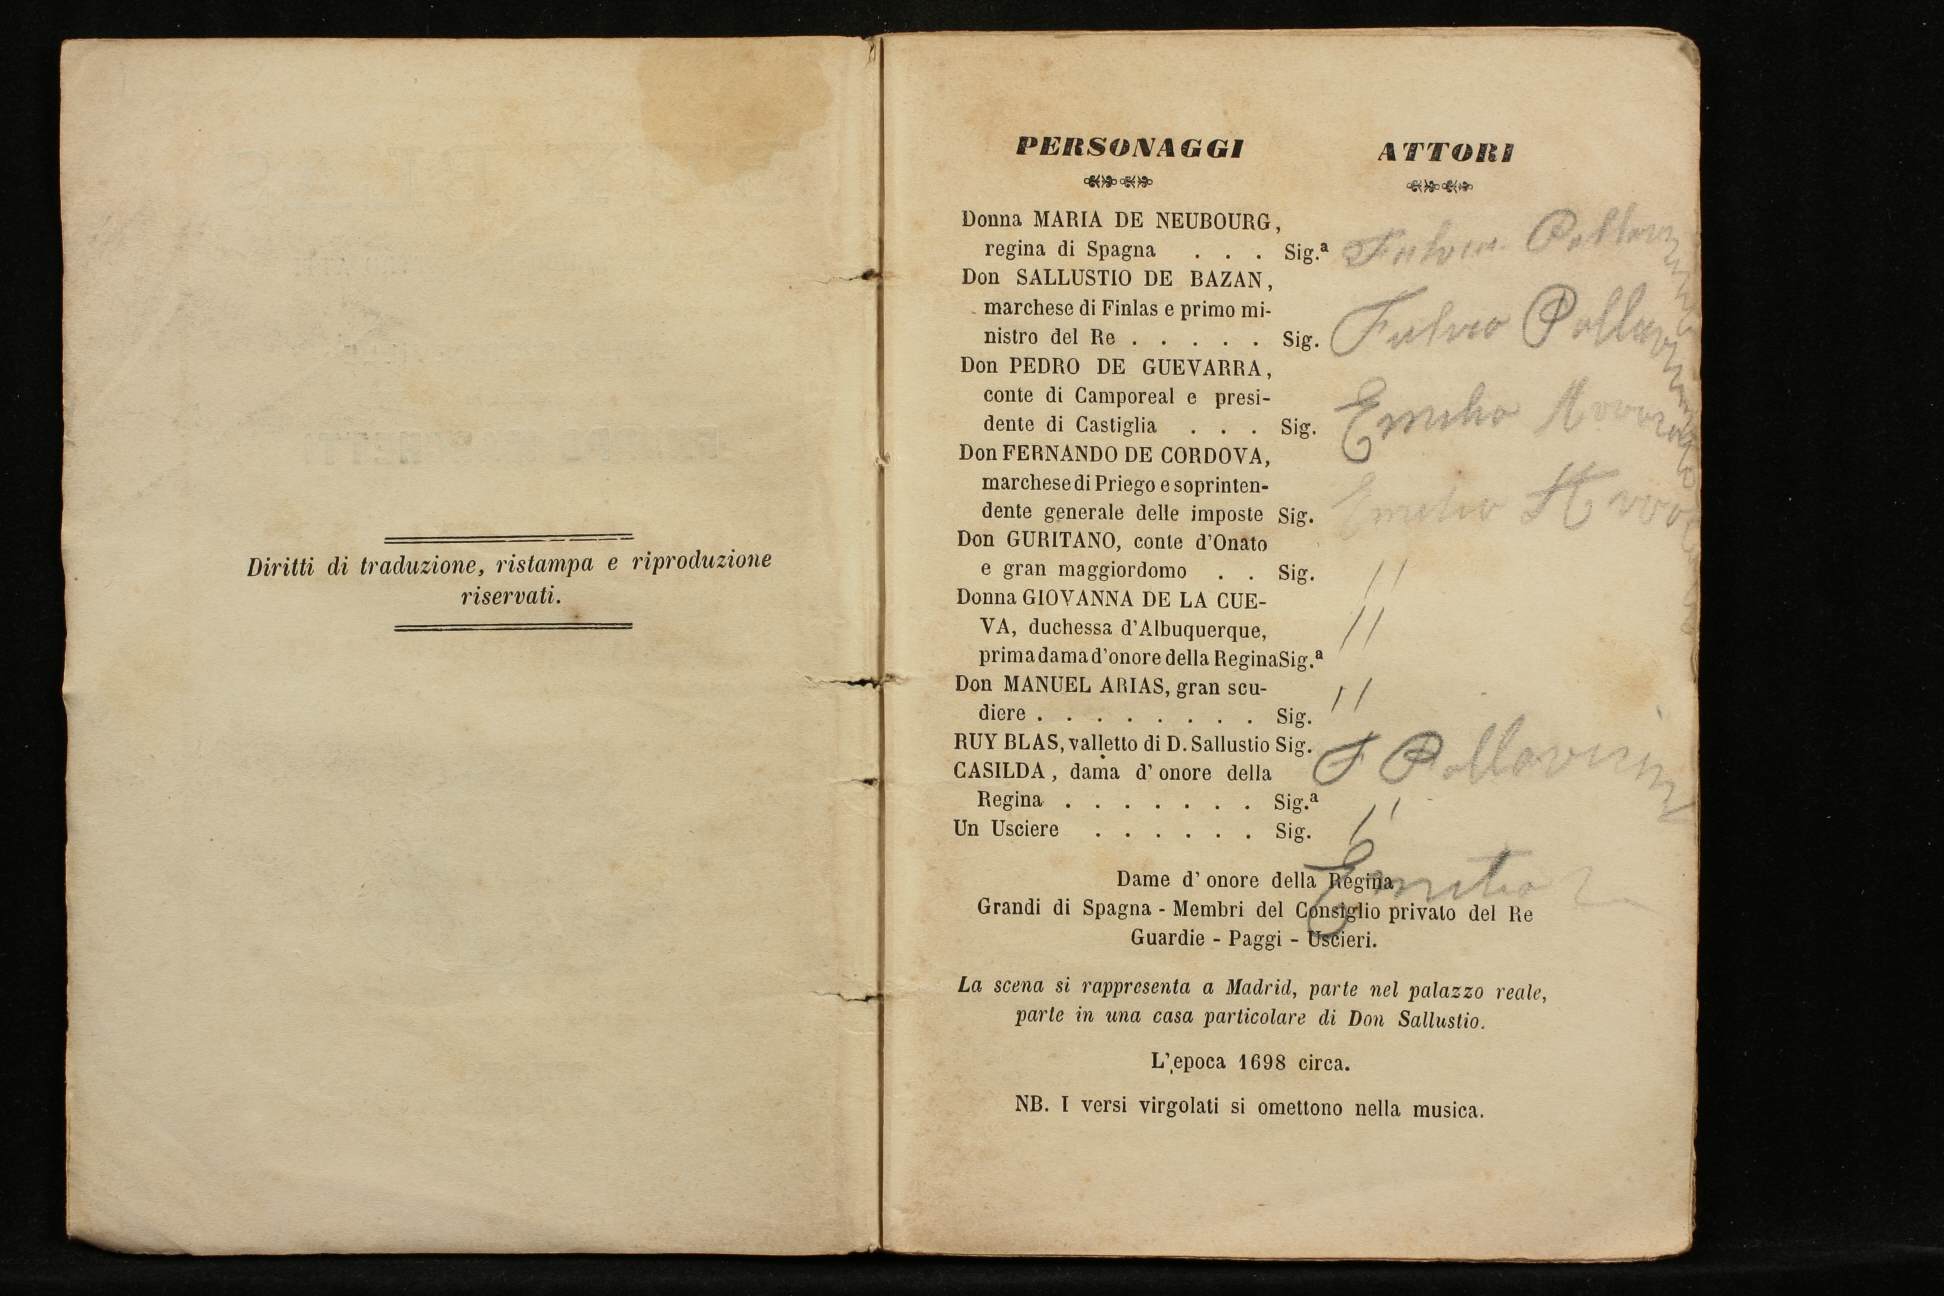 Diritti di traduzione, ristampa e riproduzione
riservati.
PERSONAGGI ATTORI
Donna MARIA DE NEUBOURG,
regina di Spagna . . . Sig.ª
Don SALLUSTIO DE BAZAN,
marchese di Finlas e primo mi-
nistro del Re . . . . . Sig. Fulvio
Don PEDRO DE GUEVARRA,
conte di Camporeal e presi-
dente di Castiglia . . . Sig. Emilio
Don FERNANDO DE CORDOVA,
marchese di Priego e soprinten-
dente generale delle imposte Sig. Emilio
Don GURITANO, conte d'Onato
e gran maggiordomo . . Sig. //
Donna GIOVANNA DE LA CUE-
VA, duchessa d'Albuquerque,
prima dama d'onore della Regina Sig.ª //
Don MANUEL ARIAS, gran scu-
diere . . . . . . . . Sig. //
RUY BLAS, valletto di D. Sallustio Sig. F Pallavicini
CASILDA, dama d'onore della
Regina . . . . . . . Sig.ª //
Un Usciere . . . . . . Sig. Emilio
Dame d'onore della Regina
Grandi di Spagna - Membri del Consiglio privato del Re
Guardie - Paggi - Uscieri.
La scena si rappresenta a Madrid, parte nel palazzo reale,
parte in una casa particolare di Don Sallustio.
L'epoca 1698 circa.
NB. I versi virgolati si omettono nella musica.